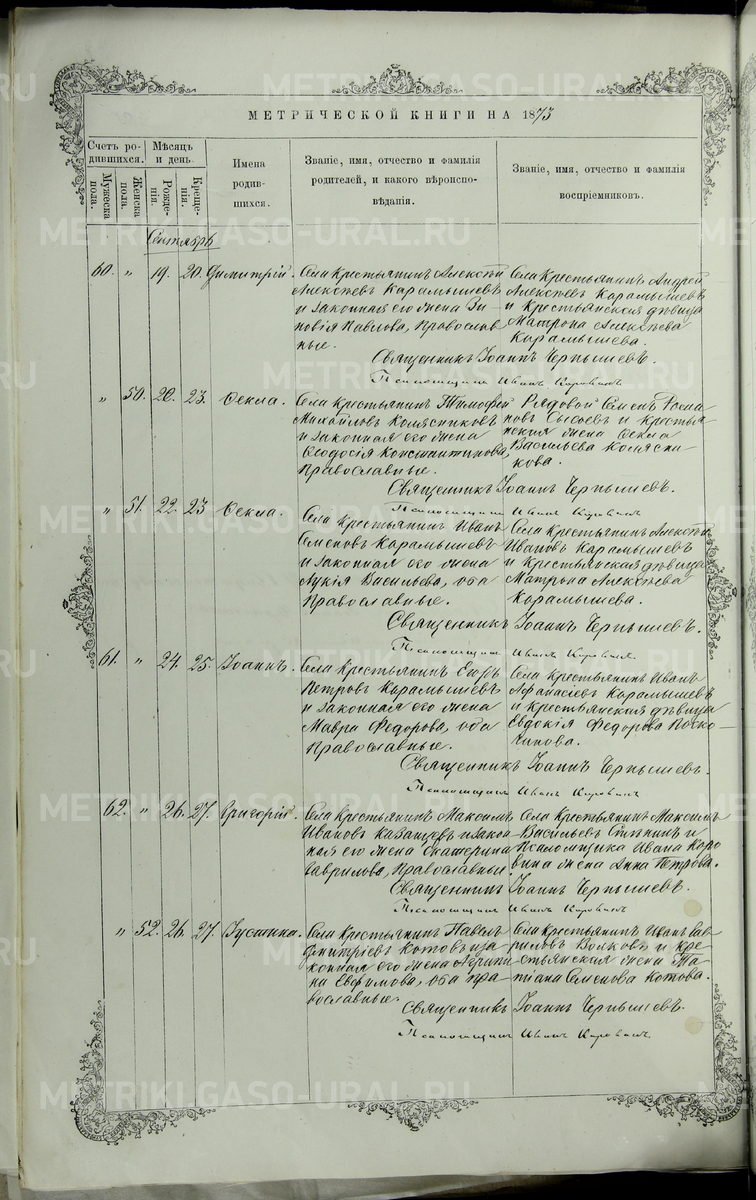 МЕТРИЧЕСКОЙ КНИГИ НА 1873
Счетъ ро-
дившихся.
Мѣсяцъ
и день.
Мужеска пола.
Женска пола.
Рожде-
нія.
Креще-
нія.
Имена
родив-
шихся.
Званіе, имя, отчество и фамилія
родителей, и какого вѣроиспо-
вѣданія.
Званіе, имя, отчество и фамилія
воспріемниковъ.
Сентябрь
60. " 19. 20. Димитрій.
Села Крестьянинъ Алексѣй
Алексѣевъ Карамышевъ
и законная его жена Зи-
новія Павлова, Православ-
ные.
Села Крестьянинъ Андрей
Алексѣевъ Карамышевъ
и Крестьянская дѣвица
Матрона Алексѣева
Карамышева.
Священникъ Іоаннъ Чернышевъ.
Псаломщикъ Иванъ Коровинъ
" 50. 20. 23. Ѳекла.
Села Крестьянинъ Тимофей
Михайловъ Колясниковъ
и законная его жена
Ѳеодосія Константинова,
Православные.
Рядовой Семенъ
Сысоевъ и Крестья
нская жена Ѳекла
Васильева Колясни-
кова.
Священникъ Іоаннъ Чернышевъ.
Псаломщикъ Иванъ Коровинъ
" 51. 22. 23 Ѳекла.
Села Крестьянинъ Иванъ
Семеновъ Карамышевъ
и законная его жена
Лукія Васильева, оба
Православные.
Села Крестьянинъ Алексѣй
Ивановъ Карамышевъ
и Крестьянская дѣвица
Матрона Алексѣева
Карамышева.
Священникъ Іоаннъ Чернышевъ.
Псаломщикъ Иванъ Коровинъ
61. " 24. 25. Іоаннъ.
Села Крестьянинъ Егоръ
Петровъ Карамышевъ
и законная его жена
Мавра Федорова, оба
Православные.
Села Крестьянинъ Иванъ
Афанасіевъ Карамышевъ
и Крестьянская дѣвица
Евдокія Федорова Поско-
чинова.
Священникъ Іоаннъ Чернышевъ.
Псаломщикъ Иванъ Коровинъ
62. " 26. 27. Григорій.
Села Крестьянинъ Максимъ
Ивановъ Казанцевъ и закон
ная его жена Екатерина
Гаврилова, Православные.
Села Крестьянинъ Максимъ
Васильевъ и
Псаломщика Ивана Коро
вина жена Анна Петрова.
Священникъ Іоаннъ Чернышевъ.
Псаломщикъ Иванъ Коровинъ
" 52. 26. 27. Іустина.
Села Крестьянинъ Павелъ
Дмитріевъ Котовъ и за
конная его жена Агрипи
на Евфимова, оба пра-
вославные.
Села Крестьянинъ Иванъ Гав-
риловъ Волковъ и кре-
стьянская жена Та-
тіана Семенова Котова.
Священникъ Іоаннъ Чернышевъ.
Псаломщикъ Иванъ Коровинъ
METRIKI.GASO-URAL.RU